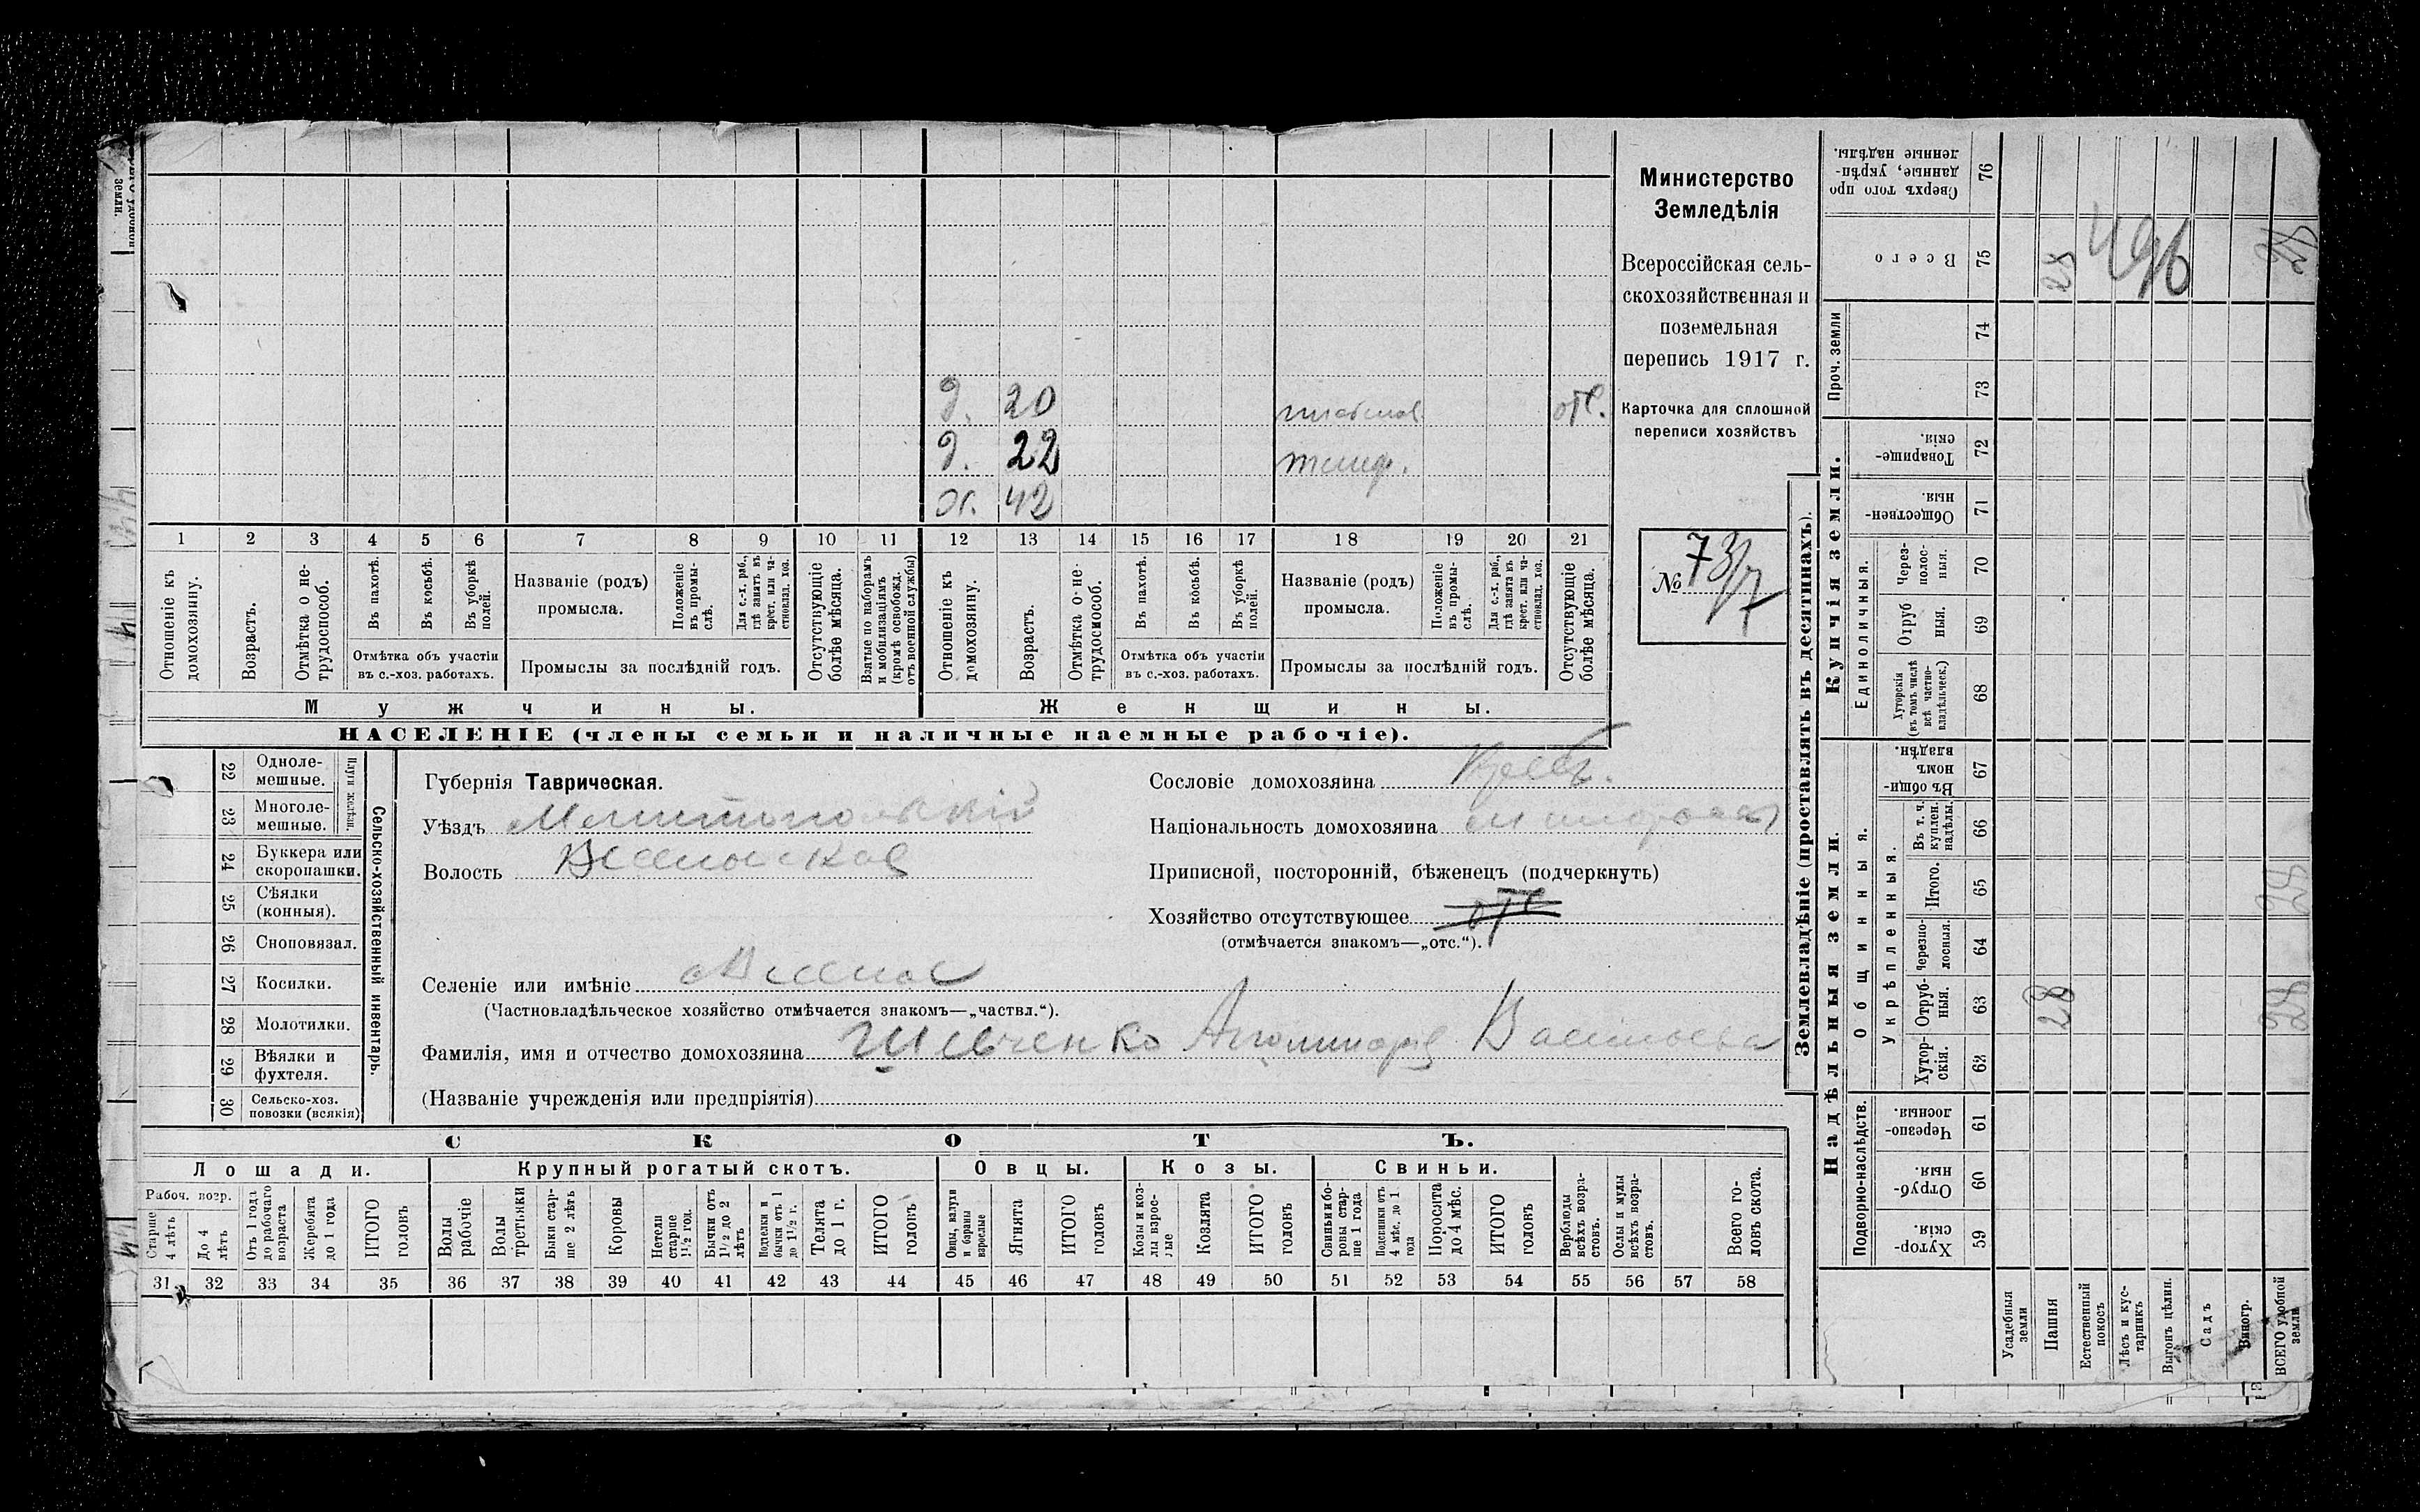 Министерство
Земледѣлія
Всероссійская сель-
скохозяйственная и
поземельная
перепись 1917 г.
Карточка для сплошной
переписи хозяйствъ
№ 73/7
д. 20 отс.
д. 22
ж. 42
1 2 3 4 5 6 7 8 9 10 11 12 13 14 15 16 17 18 19 20 21
Отношеніе къ домохозяину.
Возрастъ.
Отмѣтка о не-трудоспособ.
Въ пахотѣ.
Въ косьбѣ.
Въ уборкѣ полей.
Отмѣтка объ участіи
въ с.-хоз. работахъ.
Названіе (родъ)
промысла.
Положеніе въ промы-слѣ.
Для с.-х. раб., гдѣ занятъ въ крест. или ча-стновлад. хоз.
Промыслы за послѣдній годъ.
Отсутствующіе болѣе мѣсяца.
Взятые по наборамъ и мобилизаціямъ (кромѣ освобожд. отъ военной службы)
Отношеніе къ домохозяину.
Возрастъ.
Отмѣтка о не-трудоспособ.
Въ пахотѣ.
Въ косьбѣ.
Въ уборкѣ полей.
Отмѣтка объ участіи
въ с.-хоз. работахъ.
Названіе (родъ)
промысла.
Положеніе въ промы-слѣ.
Для с.-х. раб., гдѣ занята въ крест. или ча-стновлад. хоз.
Промыслы за послѣдній годъ.
Отсутствующіе болѣе мѣсяца.
Мужчины.
Женщины.
НАСЕЛЕНІЕ (члены семьи и наличные наемные рабочіе).
Сельско-хозяйственный инвентарь.
Плуги желѣзн.
22 Одноле-мешные.
23 Многоле-мешные.
24 Буккера или скоропашки.
25 Сѣялки (конныя).
26 Сноповязал.
27 Косилки.
28 Молотилки.
29 Вѣялки и фухтеля.
30 Сельско-хоз. повозки (всякія)
Губернія Таврическая.
Уѣздъ Мелитопольскій
Волость Веселовская
Селеніе или имѣніе Веселое
(Частновладѣльческое хозяйство отмѣчается знакомъ—„частвл.“).
Фамилія, имя и отчество домохозяина Шевченко Аполинарія Васильева
(Названіе учрежденія или предпріятія)
Сословіе домохозяина
Національность домохозяина малоросъ
Приписной, посторонній, бѣженецъ (подчеркнуть)
Хозяйство отсутствующее отс
(отмѣчается знакомъ—„отс.“).
СКОТЪ.
Лошади.
Крупный рогатый скотъ.
Овцы.
Козы.
Свиньи.
Рабоч. возр.
Старше 4 лѣтъ
До 4 лѣтъ
Отъ 1 года до рабочаго возраста
Жеребята до 1 года
ИТОГО головъ
Волы рабочіе
Волы третьяки
Быки стар-ше 2 лѣтъ
Коровы
Нетели старше 1½ год.
Бычки отъ 1½ до 2 лѣтъ
Подтелки и бычки отъ 1 до 1½ г.
Телята до 1 г.
ИТОГО головъ
Овцы, валухи и бараны взрослые
Ягнята
ИТОГО головъ
Козы и коз-лы взрос-лые
Козлята
ИТОГО головъ
Свиньи и бо-ровы стар-ше 1 года
Подсвинки отъ 4 мѣс. до 1 года
Поросята до 4 мѣс.
ИТОГО головъ
Верблюды всѣхъ возра-стовъ.
Ослы и мулы всѣхъ возра-стовъ.
Всего го-ловъ скота.
31 32 33 34 35 36 37 38 39 40 41 42 43 44 45 46 47 48 49 50 51 52 53 54 55 56 57 58
Землевладѣніе (проставлять въ десятинахъ).
Надѣльныя земли.
Купчія земли.
Проч. земли
Подворно-наслѣдств.
Общинныя.
Укрѣпленныя.
Единоличныя.
Сверхъ того про-данные, укрѣп-ленные надѣлы. 76
Всего 75 28 28
74
73
Товарище-скія. 72
Обществен-ныя. 71
Через-полос-ныя. 70
Отруб-ныя. 69
Хуторскія (въ томъ числѣ всѣ частно-владѣльческ.) 68
Въ общин-номъ владѣн. 67
Въ т. ч. куплен. надѣлы. 66
Итого. 65 28
Черезпо-лосныя. 64
Отруб-ныя. 63 28 28
Хутор-скія. 62
Черезпо-лосныя. 61
Отруб-ныя. 60
Хутор-скія. 59
Усадебныя земли
Пашня
Естественный покосъ
Лѣсъ и кус-тарникъ
Выгонъ цѣлин.
Садъ
Виногр.
ВСЕГО удобной земли